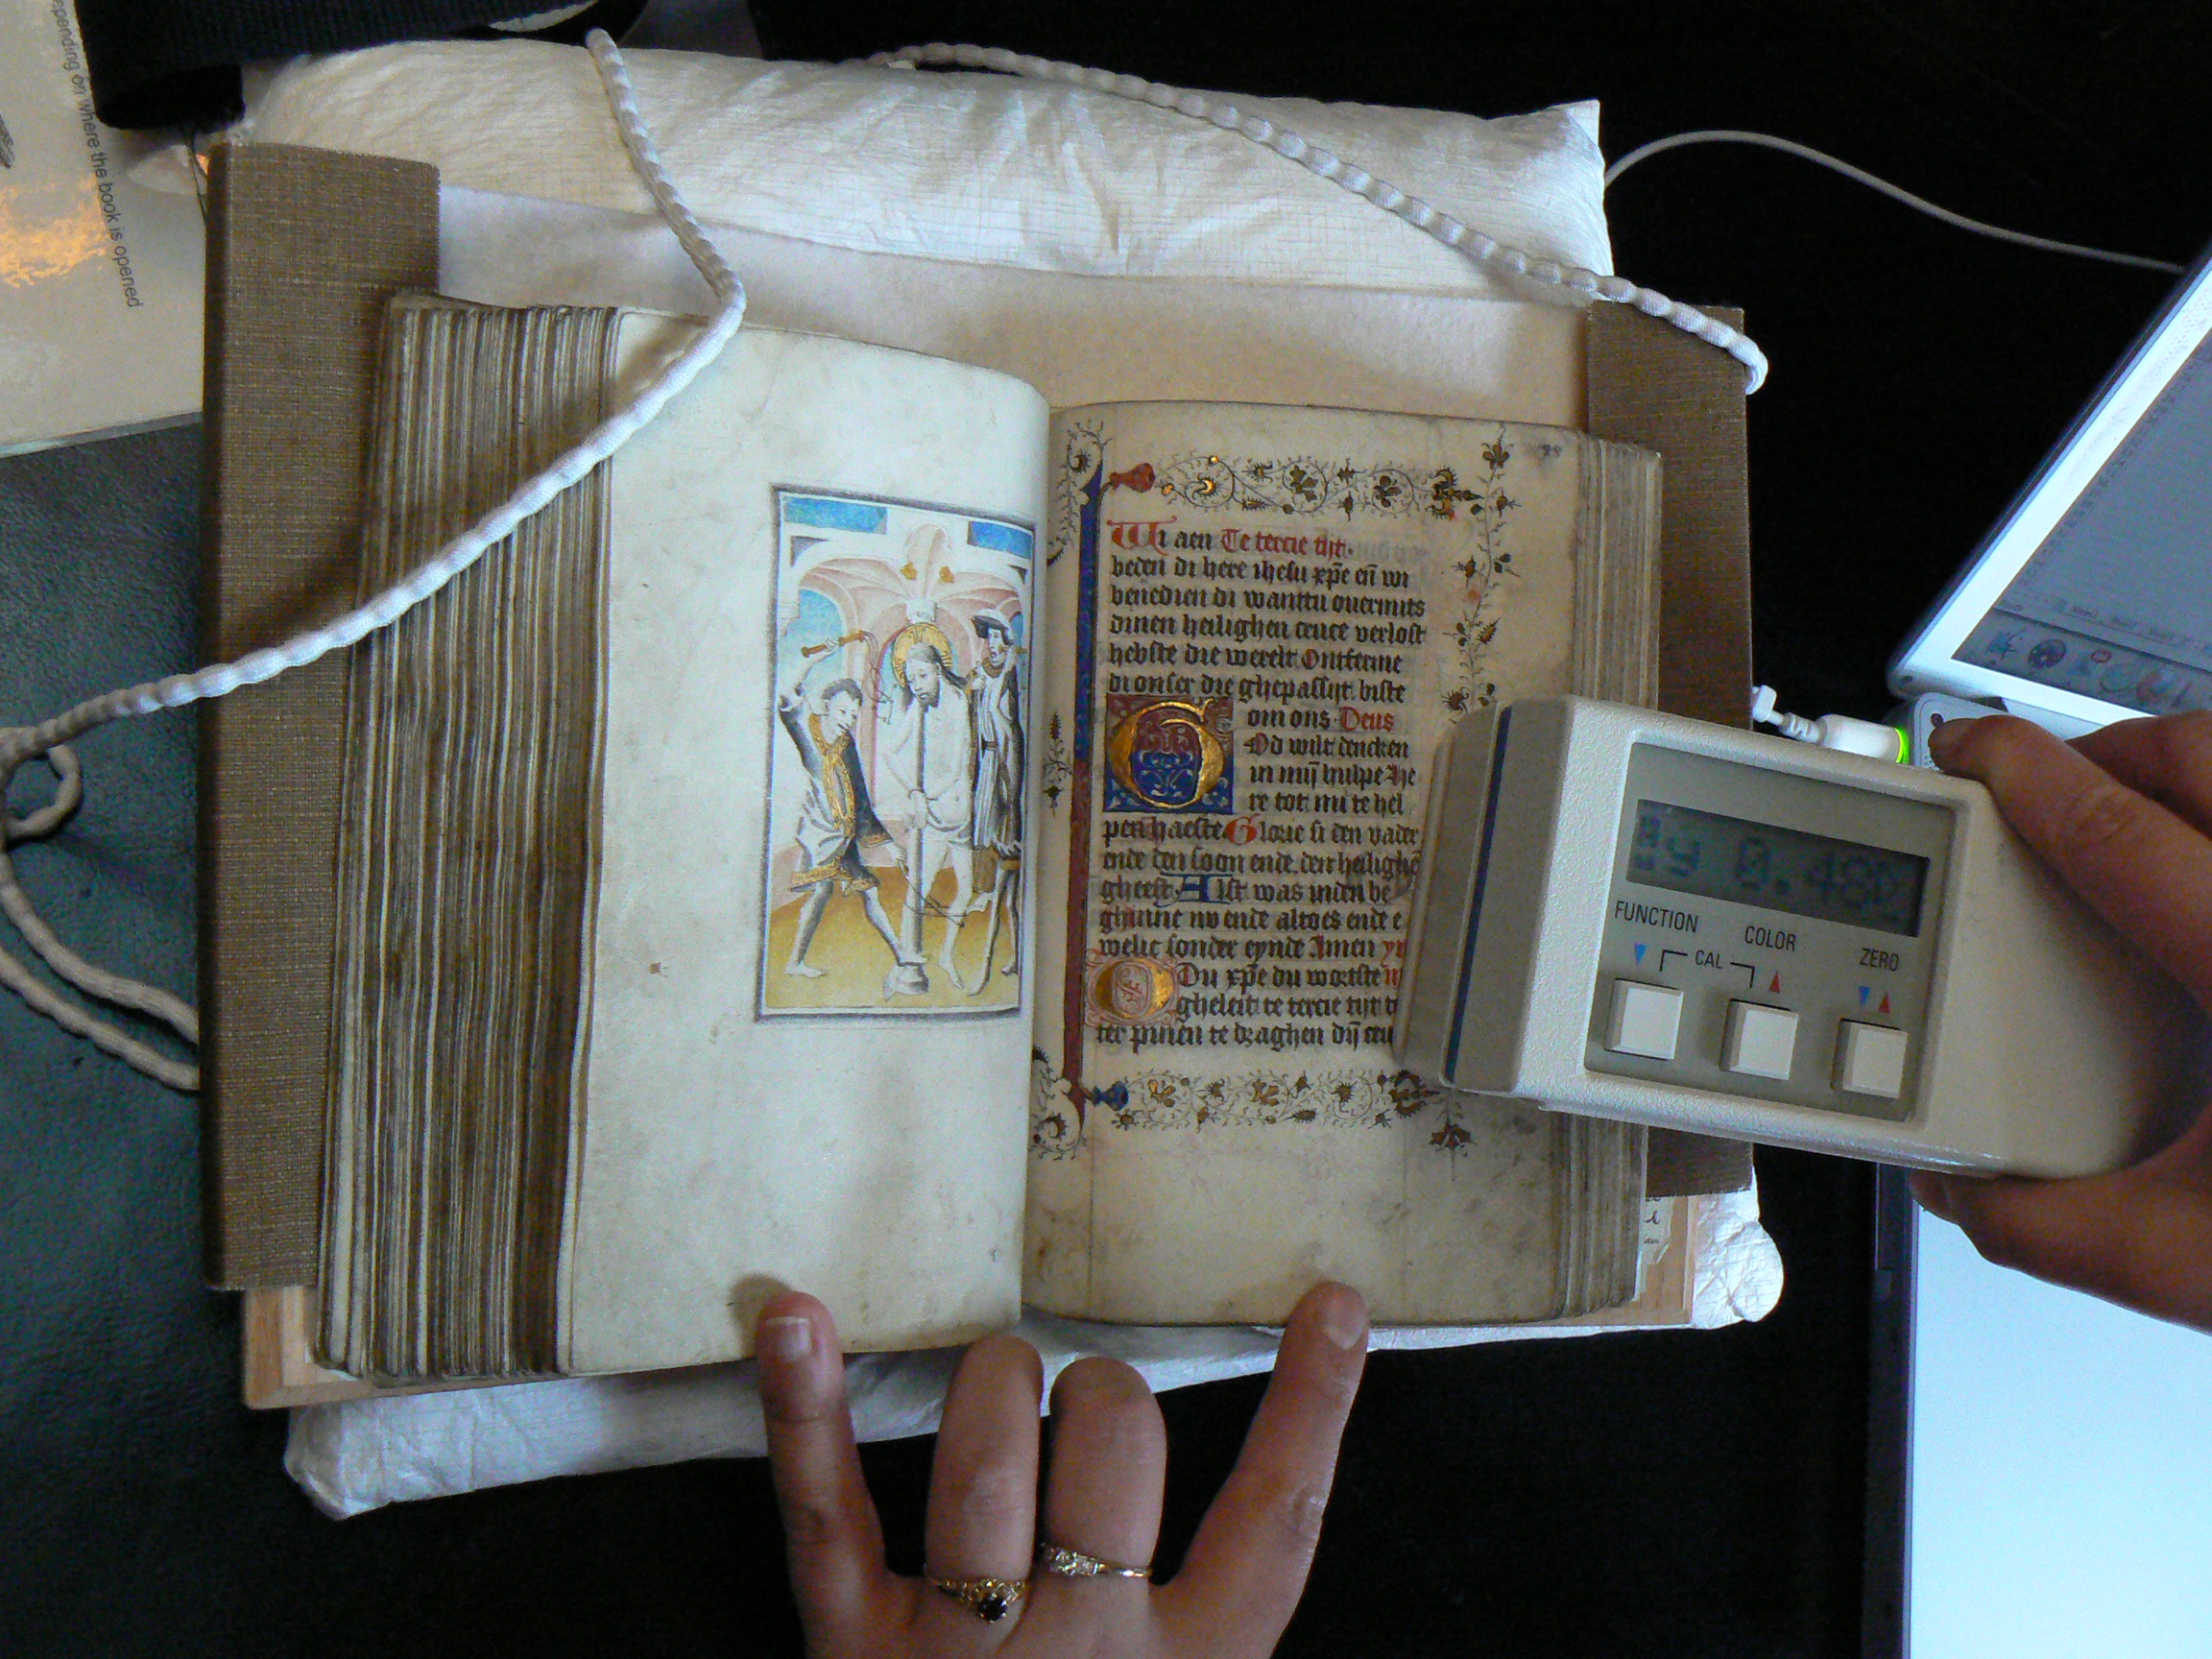 epending on where the book is opened
Wi aen Te tercie tijt.
beden di here ihesu xp̄e en̄ wi
benedien di wanttu ouermits
dinen heilighen cruce verlost
hebste die werelt Ontferme
di onser die ghepassijt biste
om ons Deus
God wilt dencken
in mij hulpe He
re tot mi te hel
pen haeste Glorie si den vader
ende den soon ende den heilighē
gheest Alst was inden be
ghinne nv ende altoes ende e
welic sonder eynde Amen
Du xp̄e du wortste
gheleit te tercie tijt
ter pinen te draghen dij cru
0.48D
FUNCTION
COLOR
ZERO
CAL